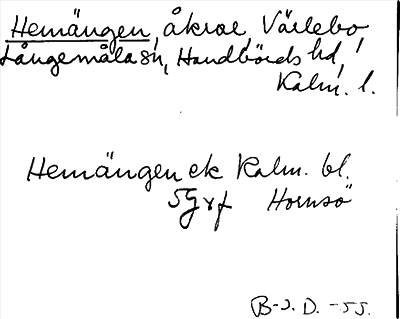 Hemängen, åkrar, Värlebo,
Långemåla sn, Handbörds hd,
Kalm. l.
Hemängen ek Kalm. bl.
5G x f Hornsö
B-J. D. -55.